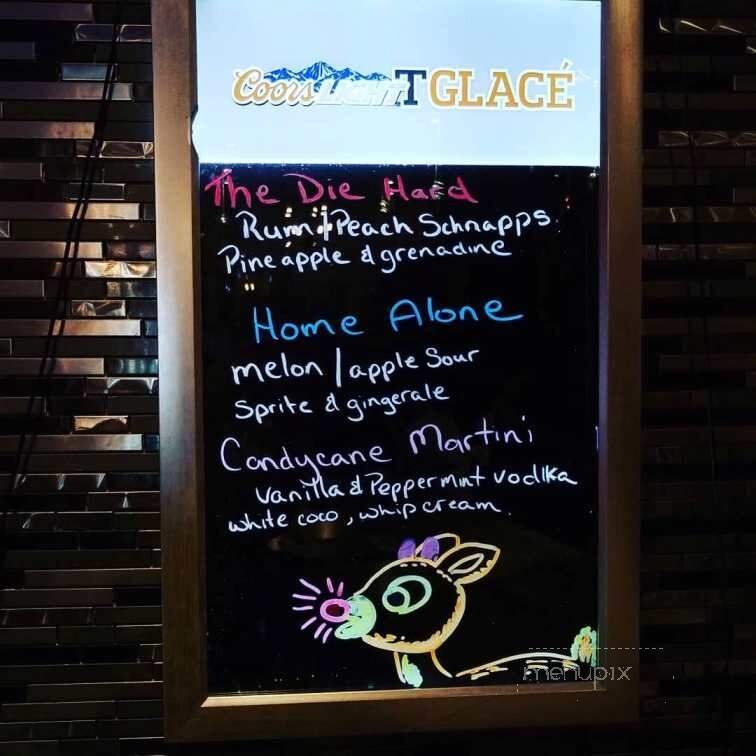 Coors LIGHT T GLACÉ
The Die Hard
Rum | Peach Schnapps
Pineapple & grenadine
Home Alone
melon | apple Sour
Sprite & gingerale
Candycane Martini
Vanilla & Peppermint vodka
white coco, whip cream.
menupix